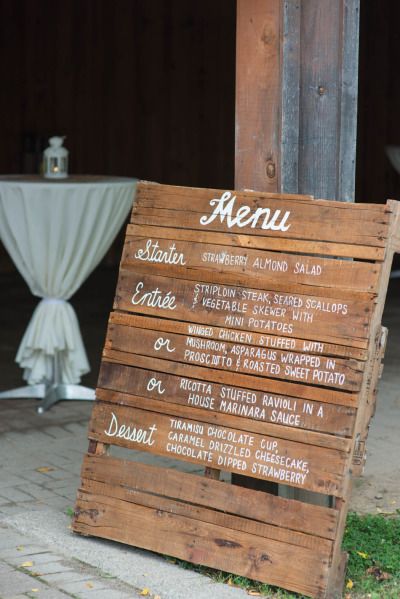 Menu
Starter STRAWBERRY ALMOND SALAD
Entrée STRIPLOIN STEAK, SEARED SCALLOPS
& VEGETABLE SKEWER WITH
MINI POTATOES
or WINGED CHICKEN STUFFED WITH
MUSHROOM, ASPARAGUS WRAPPED IN
PROSCIUTTO & ROASTED SWEET POTATO
or RICOTTA STUFFED RAVIOLI IN A
HOUSE MARINARA SAUCE
Dessert TIRAMISU CHOCOLATE CUP,
CARAMEL DRIZZLED CHEESECAKE,
CHOCOLATE DIPPED STRAWBERRY